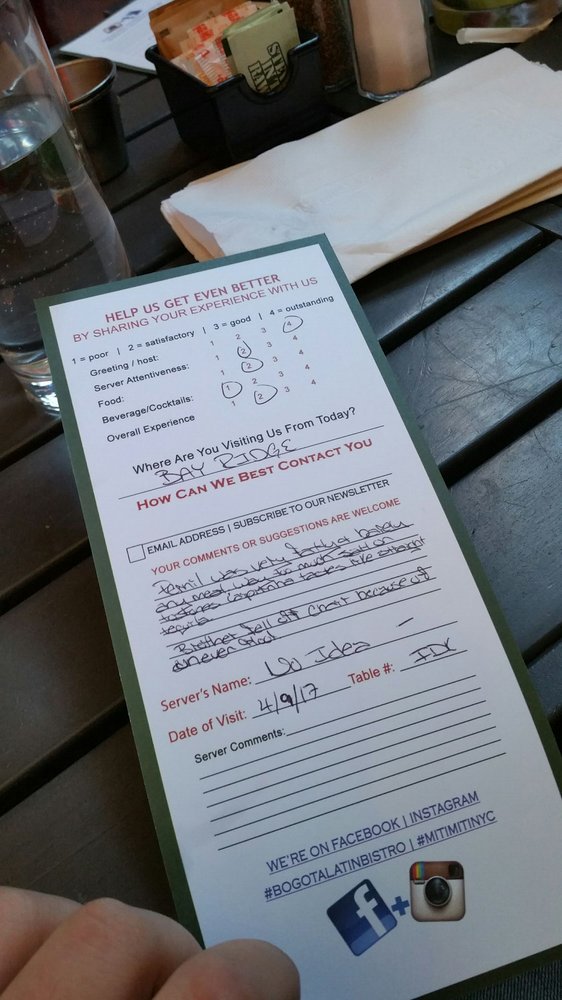 HELP US GET EVEN BETTER
BY SHARING YOUR EXPERIENCE WITH US
1 = poor | 2 = satisfactory | 3 = good | 4 = outstanding
Greeting / host: 1 2 3 4
Server Attentiveness: 1 2 3 4
Food: 1 2 3 4
Beverage/Cocktails: 1 2 3 4
Overall Experience 1 2 3 4
Where Are You Visiting Us From Today?
BAY RIDGE
HOW CAN WE BEST CONTACT YOU
EMAIL ADDRESS | SUBSCRIBE TO OUR NEWSLETTER
YOUR COMMENTS OR SUGGESTIONS ARE WELCOME
Pernil was very fatty & barely
any meat way too much salt on
tostones caipirinha tastes like straight
tequila.
Brother fell off chair because of
uneven
Server's Name: No Idea
Date of Visit: 4/9/17 Table #: IDK
Server Comments:
WE'RE ON FACEBOOK | INSTAGRAM
#BOGOTALATINBISTRO | #MITIMITINYC
f +